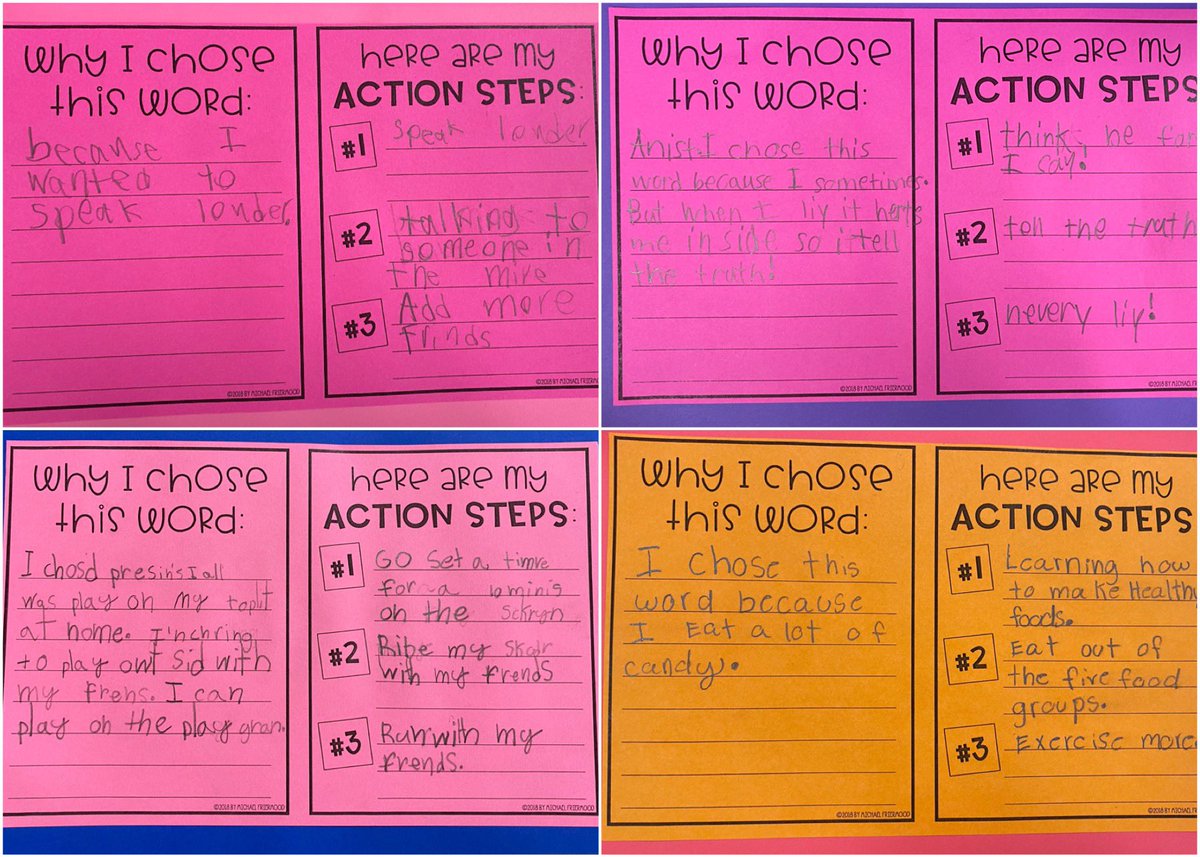 why I chose
this word:
because I
wanted to
speak louder.
©2018 BY MICHAEL FRIERMOOD
here are my
ACTION STEPS:
#1 speak louder
#2 talking to
someone in
the mire
#3 Add more
frinds
why I chose
this word:
Anist. I chose this
word because I sometimes.
But when I liy it herts
me in side so i tell
the truth!
©2018 BY MICHAEL FRIERMOOD
here are my
ACTION STEPS
#1 think he for
I say!
#2 tell the truth
#3 nevery liy!
why I chose
this word:
I chosd presin's I all
was play on my toplit
at home. I'n chring
to play owt sid with
my frehs. I can
play on the play gran.
©2018 BY MICHAEL FRIERMOOD
here are my
ACTION STEPS:
#1 GO Set a timre
for a 10 minis
on the sckryn
#2 Ribe my skotr
with my frends
#3 Run with my
frends.
©2018 BY MICHAEL FRIERMOOD
why I chose
this word:
I chose this
word because
I Eat a lot of
candy.
©2018 BY MICHAEL FRIERMOOD
here are my
ACTION STEPS
#1 Learning how
to make Healthy
foods.
#2 Eat out of
the five food
groups.
#3 Exercise more.